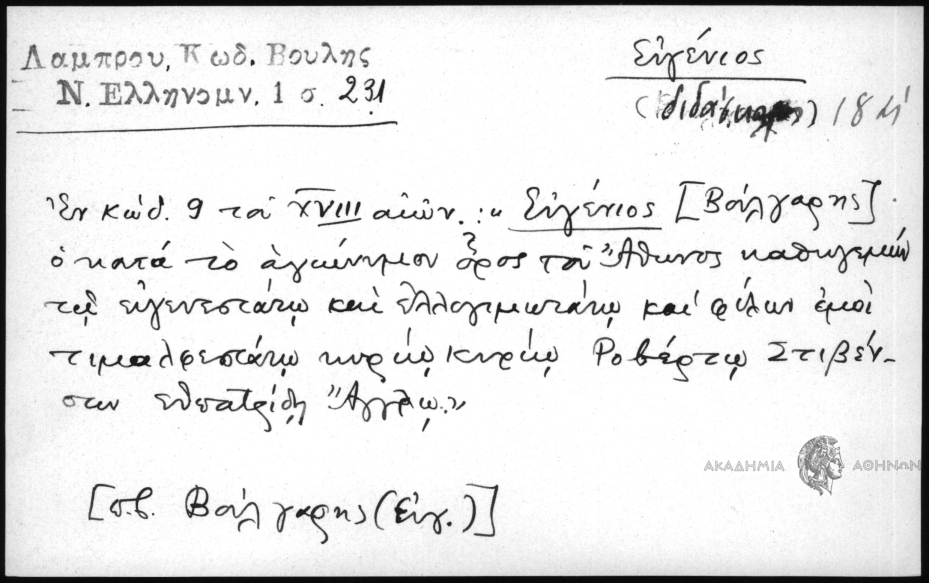 Λαμπρου, Κωδ. Βουλης
Ν. Ελληνομν. 1 σ. 231
Εὐγένιος
(διδάσκαλος) 18
Ἐν κώδ. 9 τοῦ XVIII αἰῶν. : « Εὐγένιος [Βούλγαρης]
ὁ κατὰ τὸ ἁγιώνυμον ὄρος τοῦ Ἄθωνος καθηγεμὼν
τῷ εὐγενεστάτῳ καὶ ἐλλογιμωτάτῳ καὶ φίλων ἐμοὶ
τιμαλφεστάτῳ κυρίῳ κυρίῳ Ροβέρτῳ Στιβέν-
σων εὐπατρίδῃ Ἄγγλῳ.»
ΑΚΑΔΗΜΙΑ ΑΘΗΝΩΝ
[π.β. Βούλγαρης (Εὐγ.)]